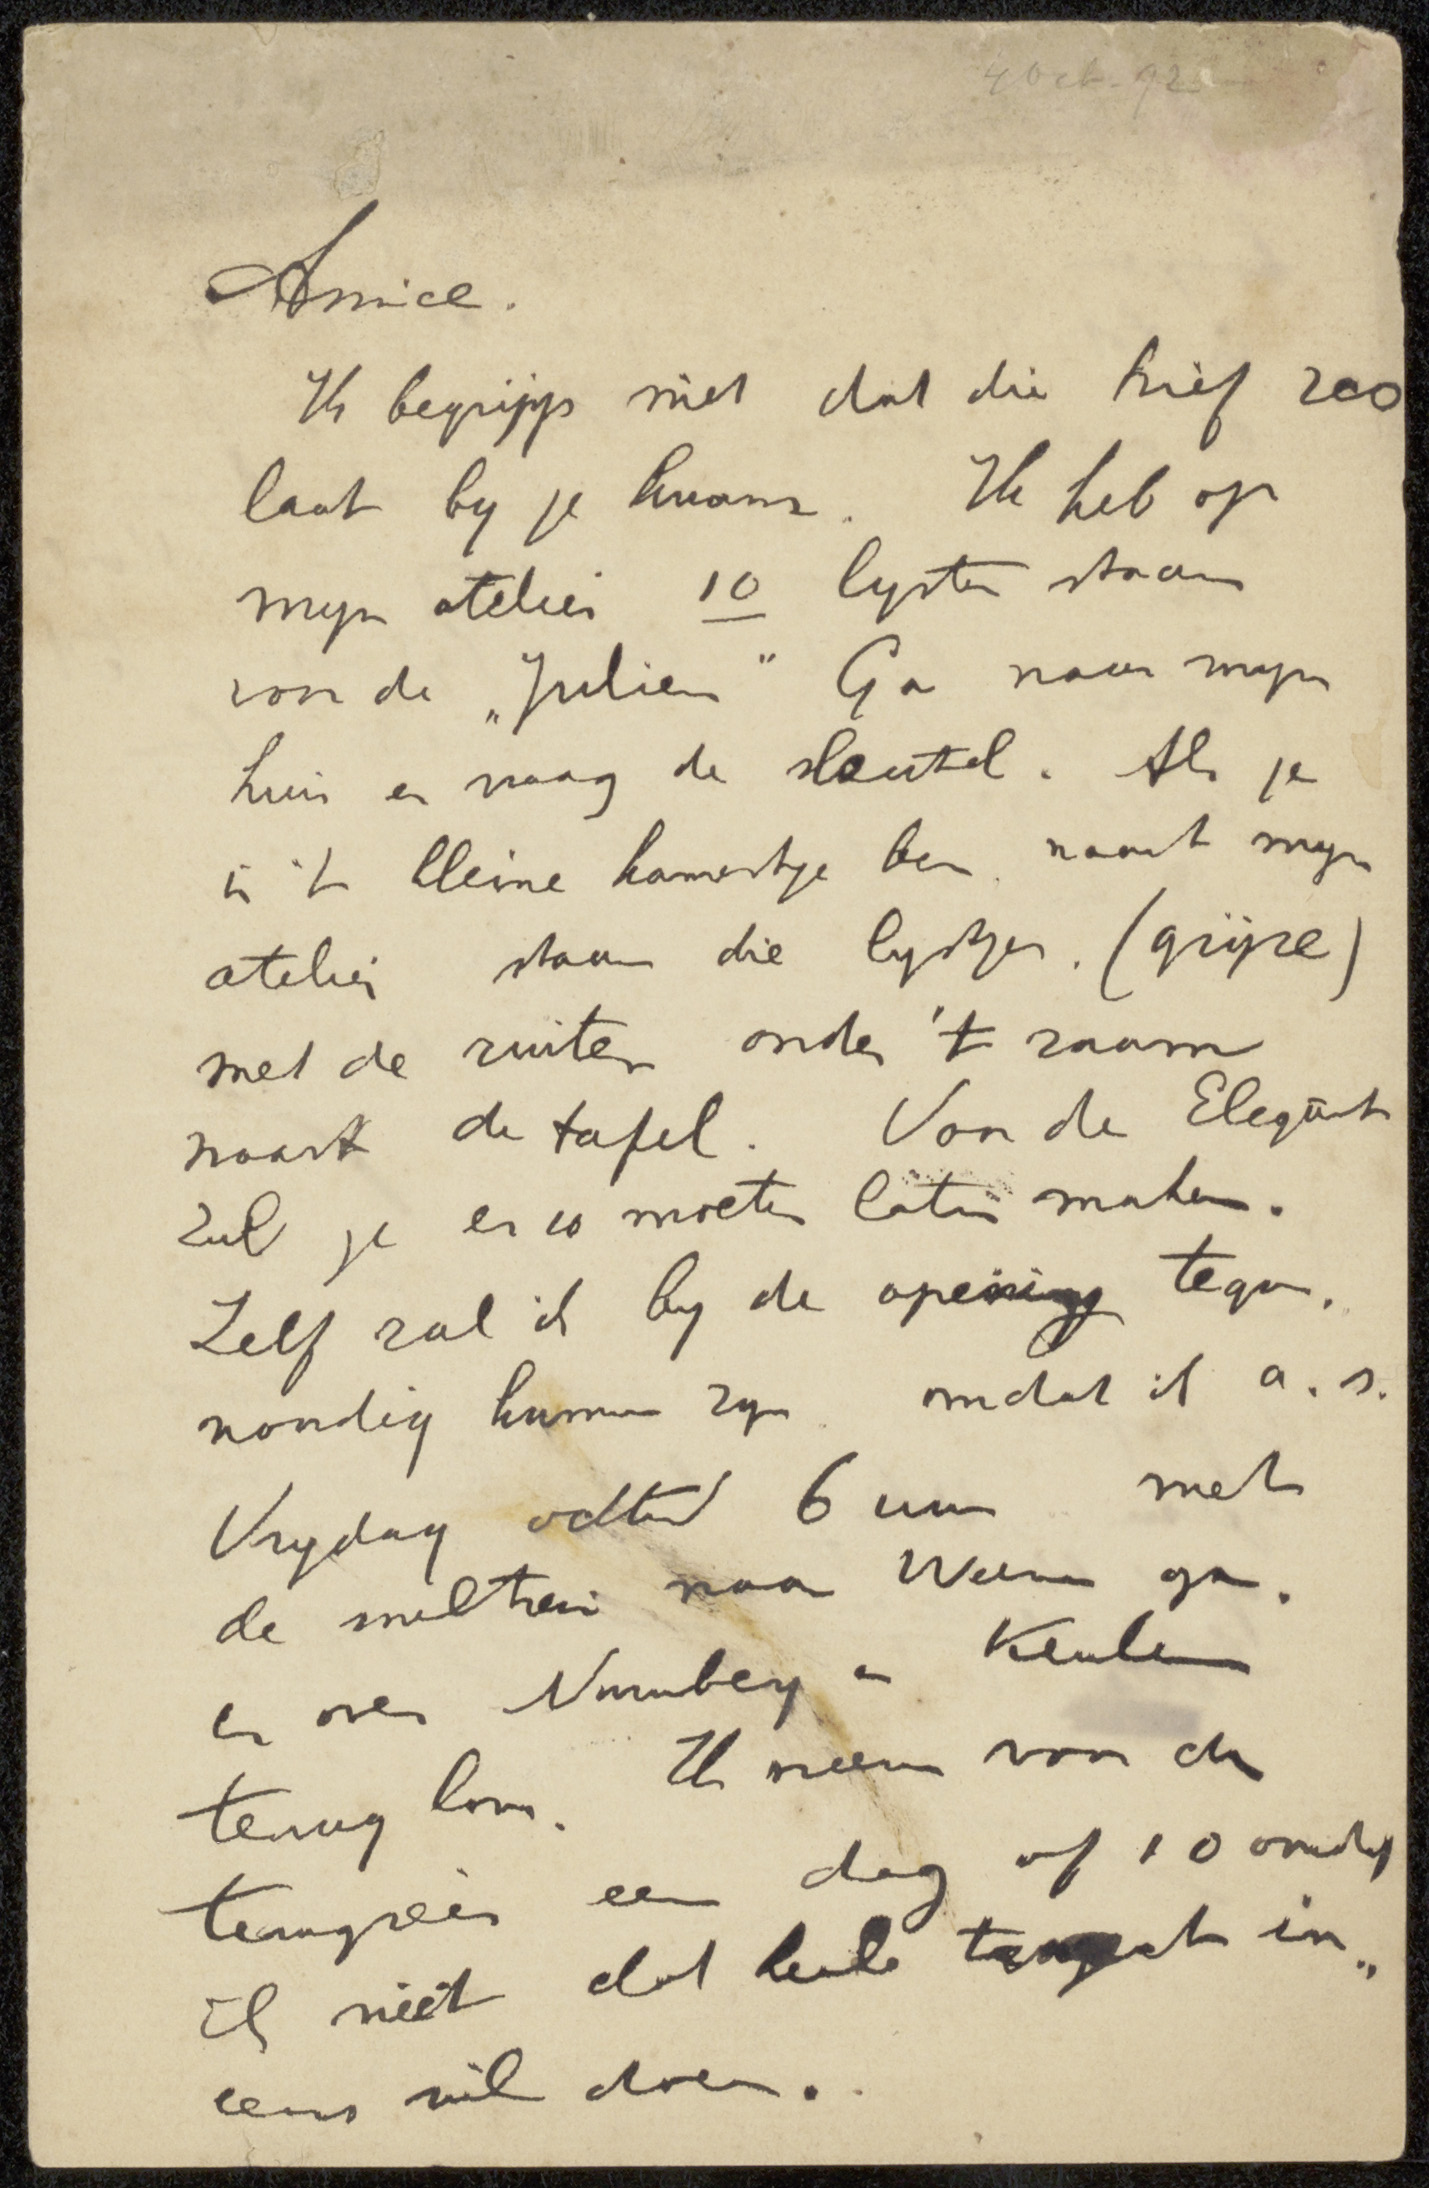 4 Oct. 92
Amice.
Ik begrijp niet dat die brief zoo
laat by je kwam. Ik heb op
myn atelier 10 lysten staan
von de „Julien" Ga naar myn
huis en vraag de sleutel. Als je
in 't kleine kamertje ben naast myn
atelier staan die lystjes. (grijze)
met de ruiten onder 't raam
naast de tafel. Von de Elegant
zul je er 10 moeten laten maken.
Zelf zal ik by de opening tegen.
woordig kunnen zyn omdat ik a.s.
Vrydag ochtend 6 uur met
de sneltrein naar Weenen ga.
en over Nurnberg en Keulen
terug kom. Ik neem voor de
terugreis een dag of 10 omdat
ik niet dat heele traject in„
eens wil doen.